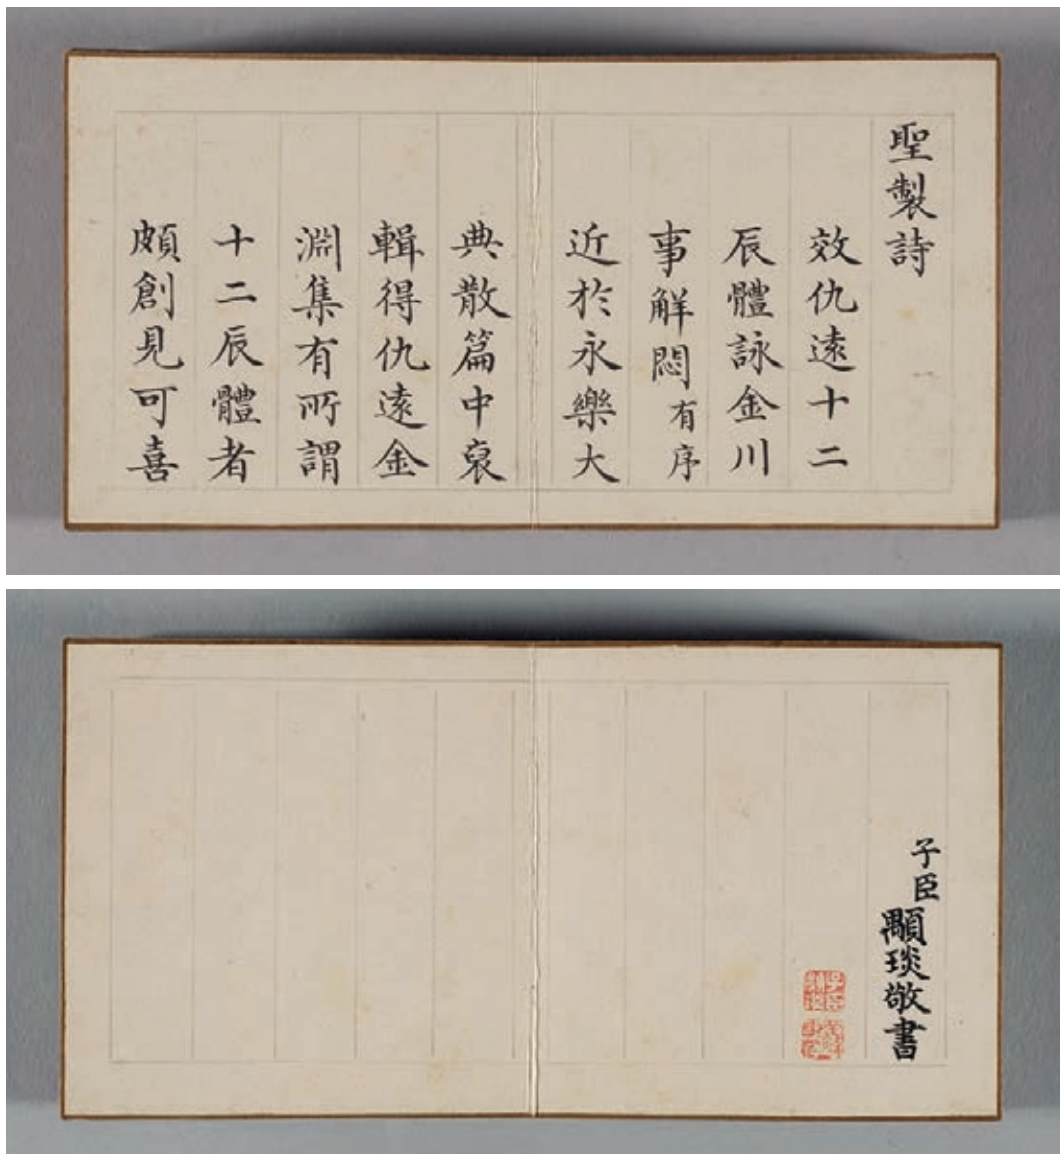 聖製詩
效仇遠十二
辰體詠金川
事解悶有序
近於永樂大
典散篇中裒
輯得仇遠金
淵集有所謂
十二辰體者
頗創見可喜
子臣顒琰敬書